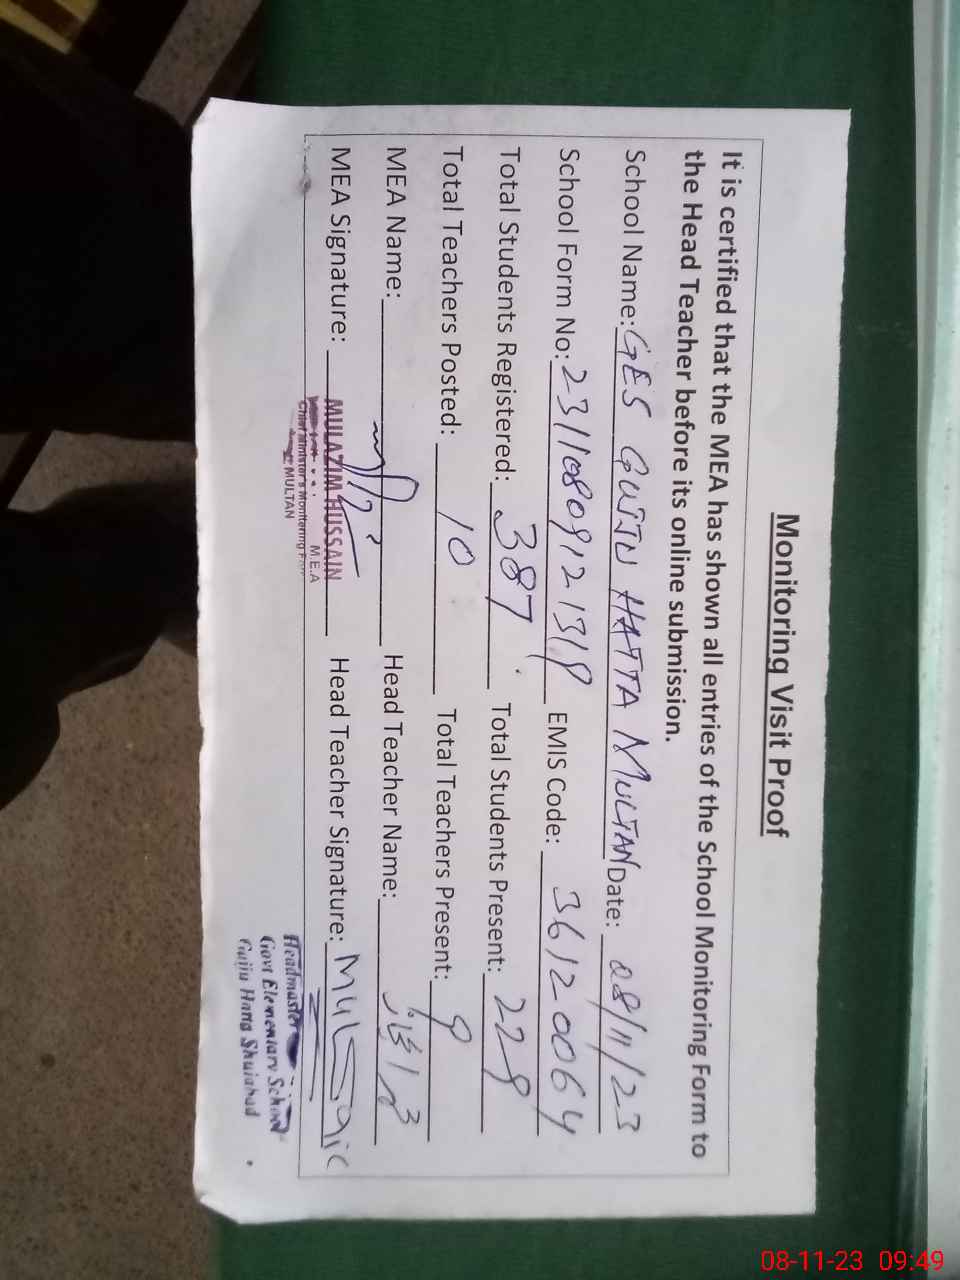 Monitoring Visit Proof
It is certified that the MEA has shown all entries of the School Monitoring Form to
the Head Teacher before its online submission.
School Name: GES GUJJU HATTA MULTAN Date: 08/11/23
School Form No: 231108091213 EMIS Code: 36120064
Total Students Registered: 387 Total Students Present: 229
Total Teachers Posted: 10 Total Teachers Present: 9
MEA Name: Head Teacher Name:
MEA Signature: Head Teacher Signature:
MULAZIM HUSSAIN
M.E.A
Chief Minister's Monitoring Force
MULTAN
Headmaster
Govt Elementary School
Gujju Hatta Shujabad
08-11-23 09:49